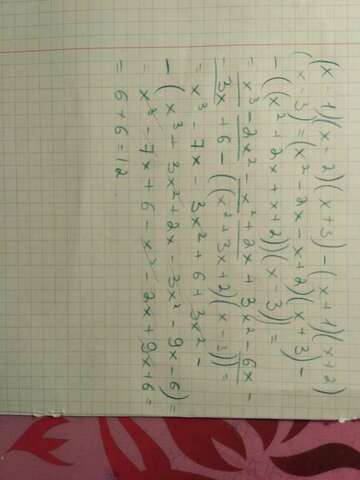 (x - 1)(x - 2)(x + 3) - (x + 1)(x + 2)
(x - 3) = (x² - 2x - x + 2)(x + 3) -
- ((x² + 2x + x + 2)(x - 3)) =
= x³ - 2x² - x² + 2x + 3x² - 6x -
- 3x + 6 - ((x² + 3x + 2)(x - 3)) =
= x³ - 7x - 3x² + 6 + 3x² -
- (x³ + 3x² + 2x - 3x² - 9x - 6) =
= x³ - 7x + 6 - x³ - 2x + 9x + 6 =
= 6 + 6 = 12.